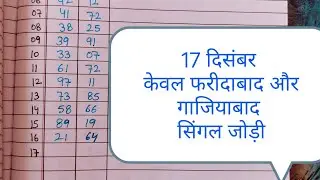 07 41 72
08 38 25
09 39 91
10 33 07
11 61 72
12 97 11
13 73 85
14 58 66
15 89 19
16 21 64
17
17 दिसंबर
केवल फरीदाबाद और
गाजियाबाद
सिंगल जोड़ी